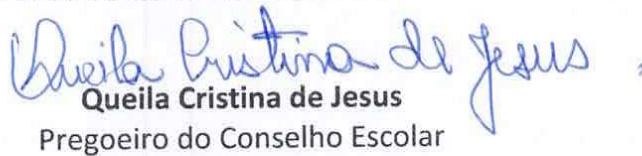 Queila Cristina de Jesus
Queila Cristina de Jesus
Pregoeiro do Conselho Escolar